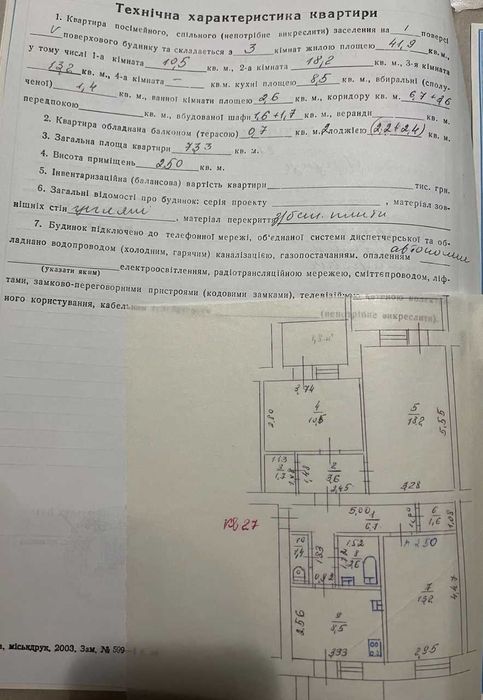 Технічна характеристика квартири
1. Квартира посімейного, спільного (непотрібне викреслити) заселення на 1 поверсі
V поверхового будинку та складається з 3 кімнат жилою площею 41,9 кв. м.,
у тому числі 1-а кімната 10,5 кв. м., 2-а кімната 18,2 кв. м., 3-я кімната
13,2 кв. м., 4-а кімната – кв. м. кухні площею 8,5 кв. м., вбиральні (сполу-
ченої) 1,4 кв. м., ванної кімнати площею 2,6 кв. м., коридору кв. м. 6,7+9,6
передпокою кв. м., вбудованої шафи 1,6+1,7 кв. м., веранди кв. м.
2. Квартира обладнана балконом (терасою) 0,7 кв. м. 2 лоджією (2,2+2,4) кв. м.
3. Загальна площа квартири 73,3 кв. м.
4. Висота приміщень 250 кв. м.
5. Інвентаризаційна (балансова) вартість квартири тис. грн.
6. Загальні відомості про будинок: серія проекту , матеріал зов-
нішніх стін цегляні , матеріал перекриття з/бет. плити
7. Будинок підключено до телефонної мережі, об'єднаної системи диспетчерської та об-
ладнано водопроводом (холодним, гарячим) каналізацією, газопостачанням. опаленням автономн
(указати яким) електроосвітленням, радіотрансляційною мережею, сміттєпроводом, ліф-
тами, замково-переговорними пристроями (кодовими замками), телевізійною
ного користування, кабельним
(непотрібне викреслити).
1,8 м²
3,74
2,80
4
10,5
5
18,2
5,55
3,28
1,13
3
1,7
1,48
1,48
2
9,6
2,45
5,00
1
6,7
1,20
6
1,6
1,08
кв 27
h 2,50
10
1,4
1,83
1,52
1,72
8
2,6
0,82
7
13,2
4,47
2,56
9
8,5
3,33
2,95
, міськдрук, 2003, Зам. № 599